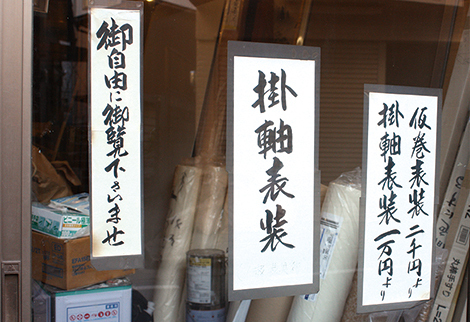 御自由に御覧下さいませ
掛軸表装
仮巻表装 二千円より
掛軸表装 一万円より